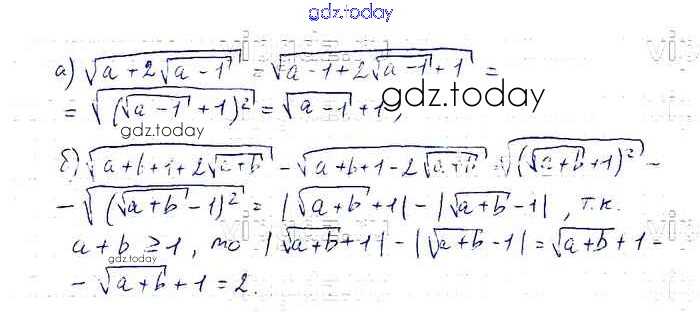 gdz.today
а) √(a + 2√(a - 1)) = √(a - 1 + 2√(a - 1) + 1) =
= √((√(a - 1) + 1)²) = √(a - 1) + 1,
gdz.today
gdz.today
б) √(a + b + 1 + 2√(a + b)) - √(a + b + 1 - 2√(a + b)) = √((√(a + b) + 1)²) -
- √((√(a + b) - 1)²) = |√(a + b) + 1| - |√(a + b) - 1|, т.к.
a + b ≥ 1, то |√(a + b) + 1| - |√(a + b) - 1| = √(a + b) + 1 -
gdz.today
- √(a + b) + 1 = 2.